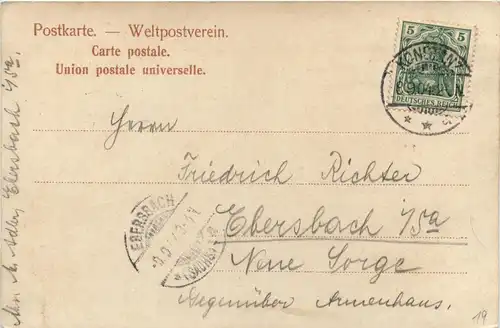 Postkarte. — Weltpostverein.
Carte postale.
Union postale universelle.
5 5
DEUTSCHES REICH
KONSTANZ
Herrn
Friedrich Richter
Ebersbach i/Sa
Neue Sorge
Gegenüber Armenhaus.
EBERSBACH
(SACHSEN)
Adler Ebersbach i/Sa.
19